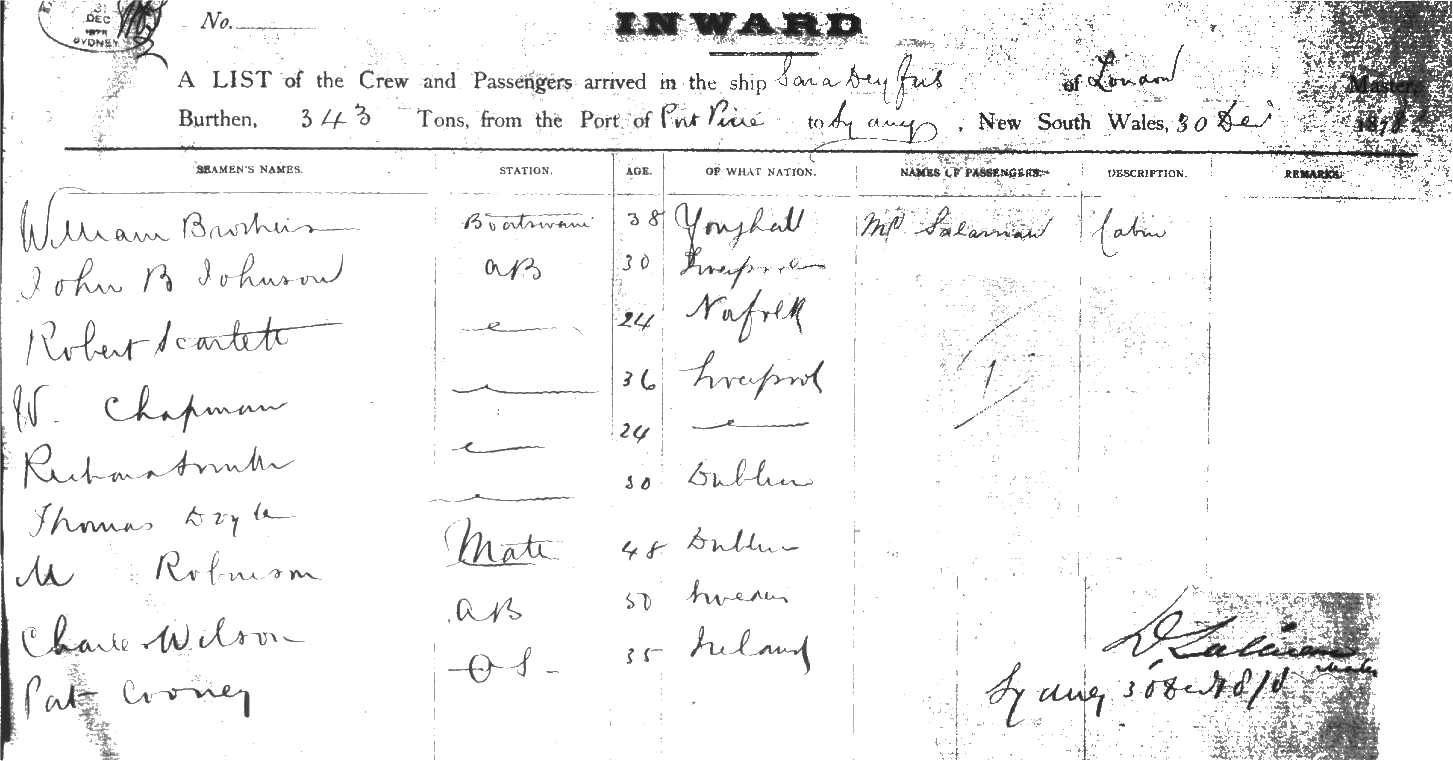 DEC
SYDNEY
No.
INWARD
A LIST of the Crew and Passengers arrived in the ship Sara Dreyfus of London Master,
Burthen, 343 Tons, from the Port of Port Pirie to Sydney, New South Wales, 30 Dec 1878
SEAMEN'S NAMES. STATION. AGE. OF WHAT NATION. NAMES OF PASSENGERS. DESCRIPTION. REMARKS.
William Brothers Boatswain 38 Youghall Mrs Cabin
John B Johnson AB 30 Liverpool
Robert Scarlett 24 Norfolk
W. Chapman 36 Liverpool
Richard Smith 24
Thomas Doyle 30 Dublin
M Robinson Mate 48 Dublin
Charles Wilson AB 50 Sweden
Pat Cooney OS 35 Ireland
1
Sydney 30 Dec 1878